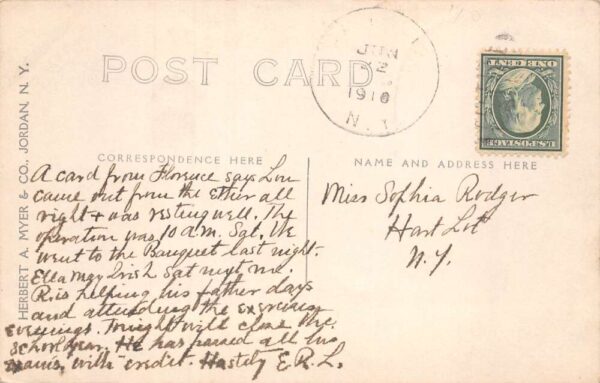 POST CARD
JUN
2
1910
N.Y.
U.S. POSTAGE
ONE CENT
HERBERT A. MYER & CO., JORDAN, N. Y.
CORRESPONDENCE HERE
A card from Florence says Lon
came out from the Ether all
right + was resting well. The
operation was 10 A.M. Sat. We
went to the Banquet last night.
Ella May Irish sat next me.
R. is helping his father days
and attending the exercises
evenings. Tonight will close the
school year. He has passed all his
exams, "with" credit. Hastily E.R.L.
NAME AND ADDRESS HERE
Miss Sophia Rodger
Hart Lot
N.Y.